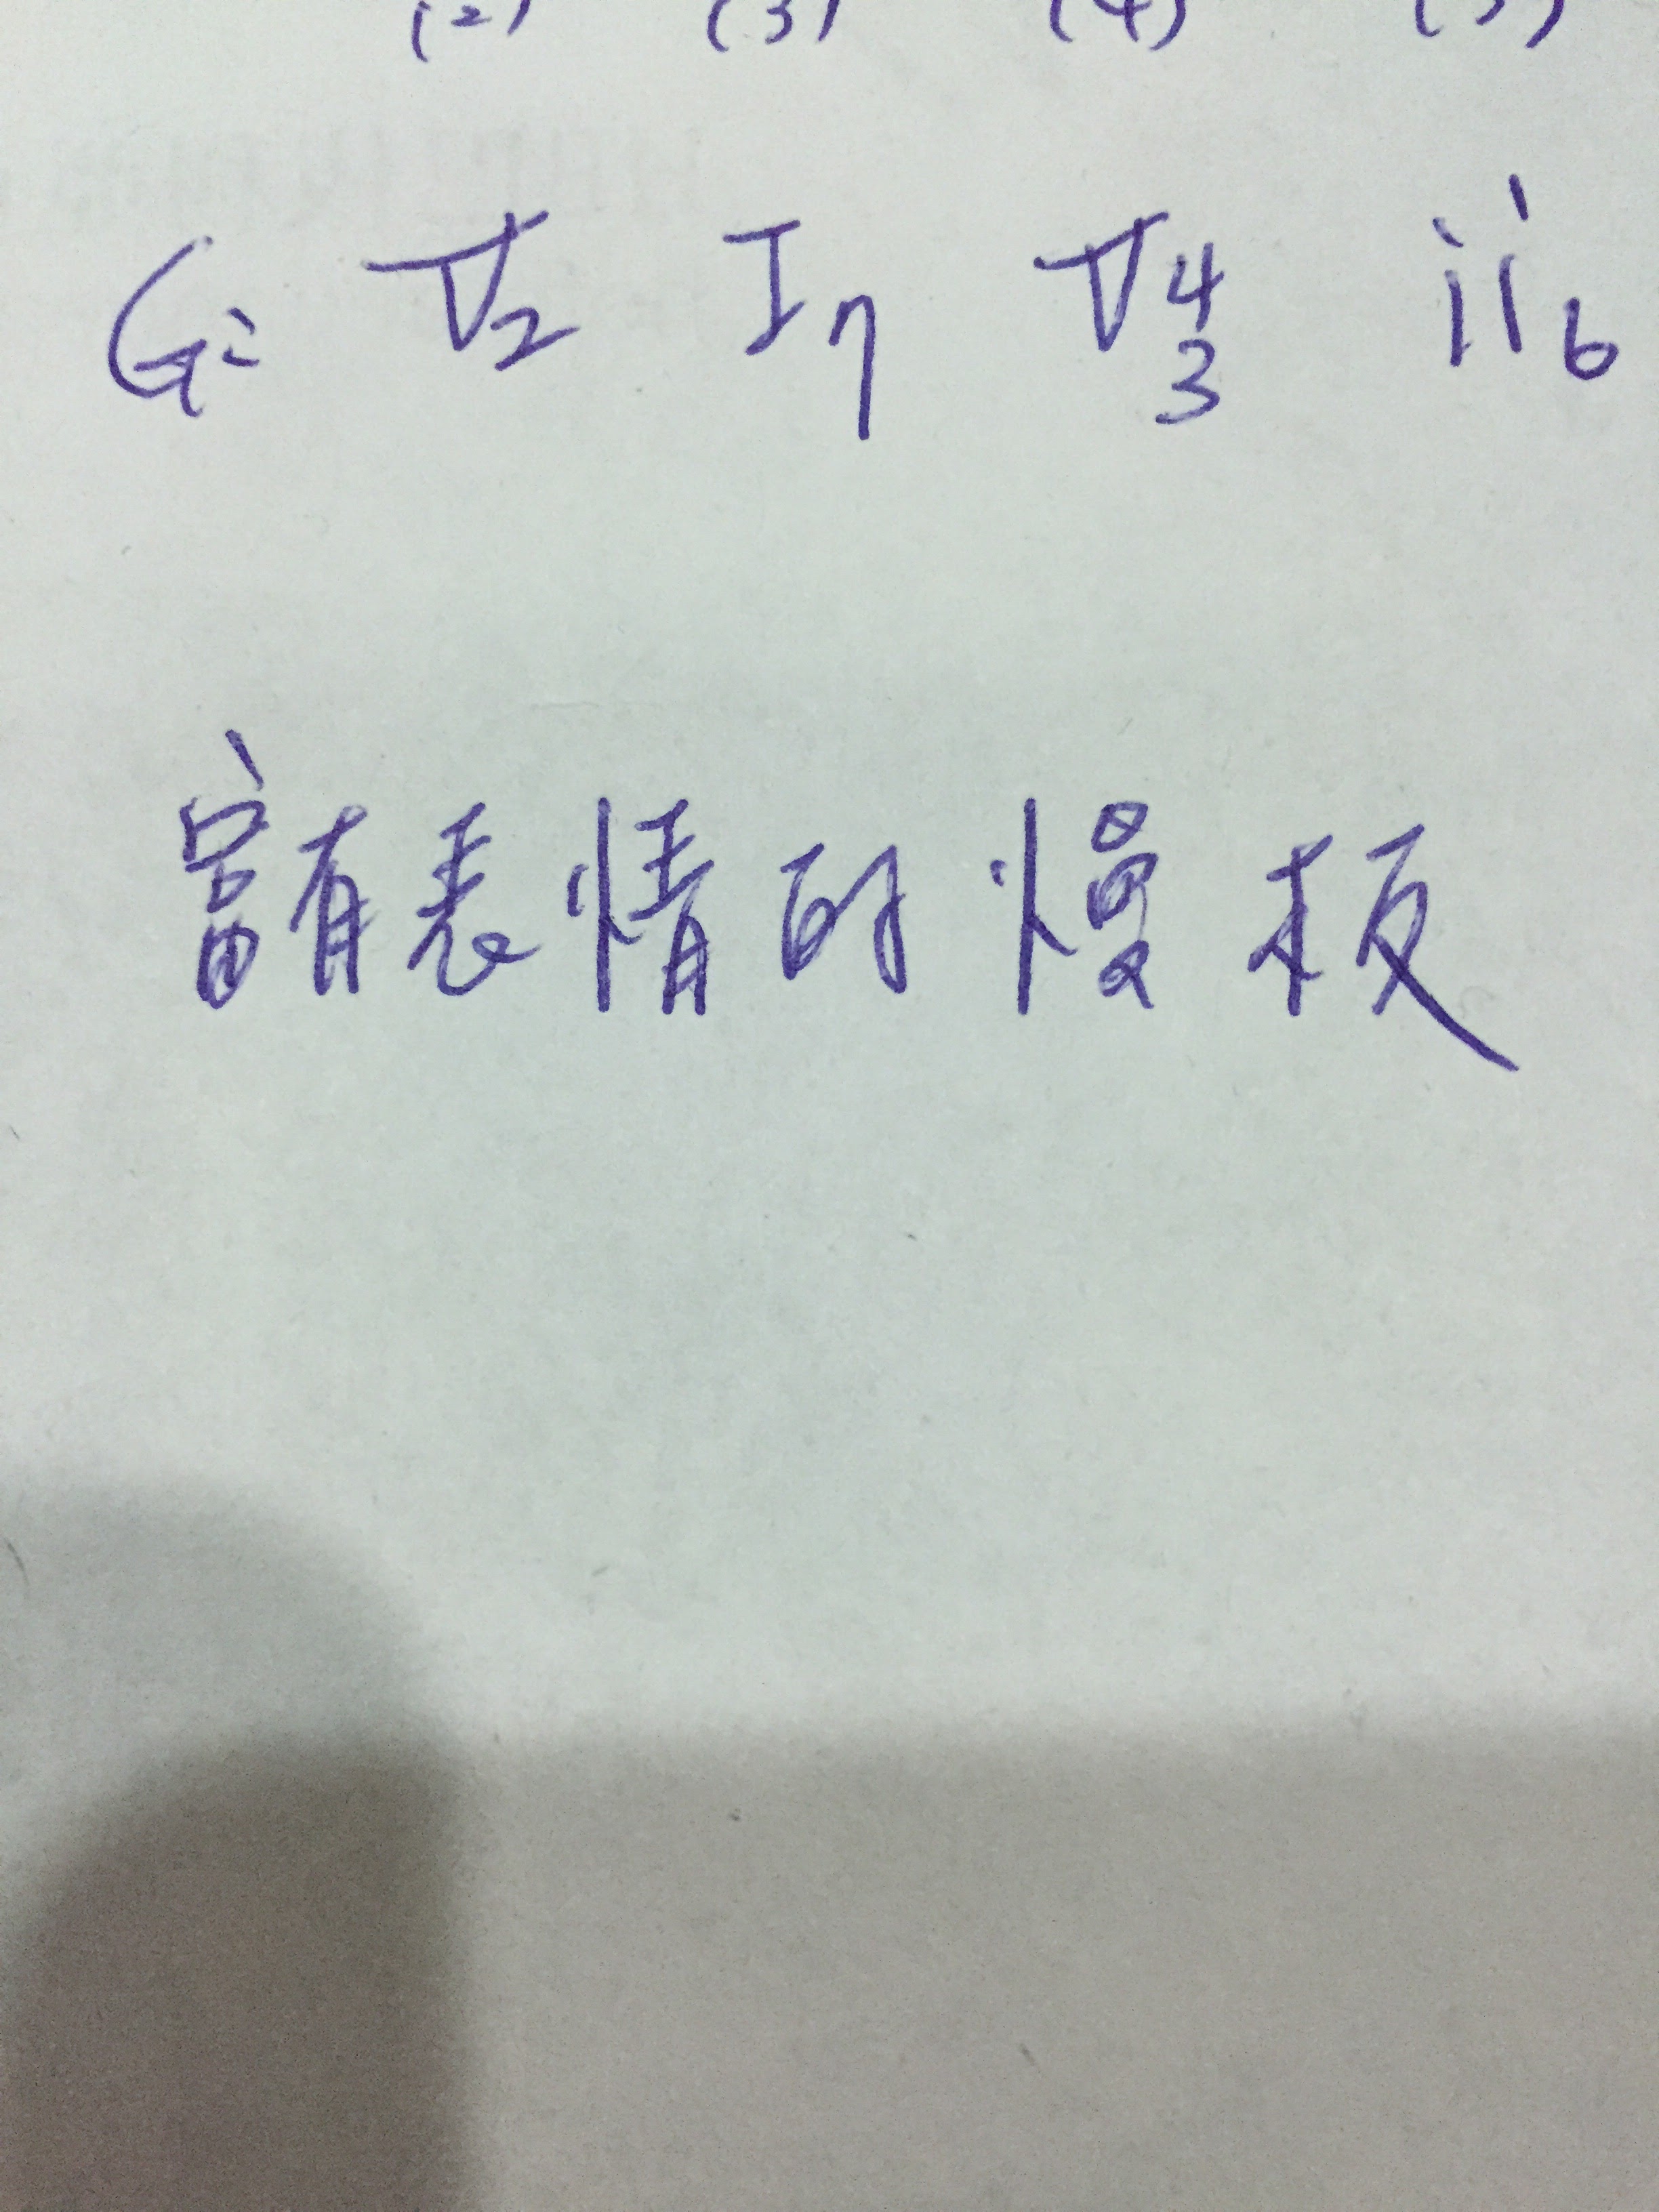 (2) (3) (4) (5)
G: V2 I7 V43 ii6
富有表情的慢板